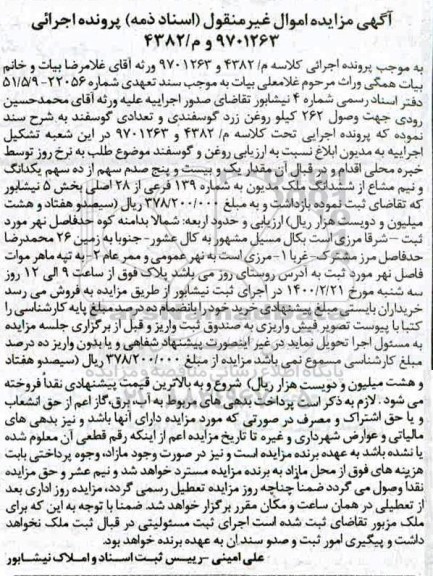 آگهی مزایده اموال غیرمنقول (اسناد ذمه) پرونده اجرائی
۹۷۰۱۲۶۳ و م/۴۳۸۲
به موجب پرونده اجرائی کلاسه م/ ۴۳۸۲ و ۹۷۰۱۲۶۳ ورثه آقای غلامرضا بیات و خانم
بیات همگی وراث مرحوم غلامعلی بیات به موجب سند تعهدی شماره ۲۲۰۵۶- ۵۱/۵/۹
دفتر اسناد رسمی شماره ۴ نیشابور تقاضای صدور اجراییه علیه ورثه آقای محمدحسین
رودی جهت وصول ۲۶۲ کیلو روغن زرد گوسفندی و تعدادی گوسفند به شرح سند
نموده که پرونده اجرایی تحت کلاسه م/ ۴۳۸۲ و ۹۷۰۱۲۶۳ در این شعبه تشکیل
اجراییه به مدیون ابلاغ نسبت به ارزیابی روغن و گوسفند موضوع طلب به نرخ روز توسط
خبره محلی اقدام و در قبال آن مقدار یک و بیست و پنج صدم سهم از ده سهم یکدانگ
و نیم مشاع از ششدانگ ملک مدیون به شماره ۱۳۹ فرعی از ۲۸ اصلی بخش ۵ نیشابور
که تقاضای ثبت نموده بازداشت و به مبلغ ۳۷۸/۲۰۰/۰۰۰ ریال (سیصدو هفتاد و هشت
میلیون و دویست هزار ریال) ارزیابی و حدود اربعه: شمالا بدامنه کوه حدفاصل نهر مورد
ثبت – شرقا مرزی است بکال مسیل مشهور به کال عشور- جنوبا به زمین ۲۶ محمدرضا
حدفاصل مرز مشترک- غربا ۱-مرزی است به نهر عمومی و ممر عام ۲- به تپه ماهور موات
فاصل نهر مورد ثبت به آدرس روستای روز می باشد پلاک فوق از ساعت ۹ الی ۱۲ روز
سه شنبه مورخ ۱۴۰۰/۲/۲۱ در اجرای ثبت نیشابور از طریق مزایده به فروش می رسد
خریداران بایستی مبلغ پیشنهادی خرید خود را بانضمام ده درصد مبلغ پایه کارشناسی را
کتبا با پیوست تصویر فیش واریزی به صندوق ثبت واریز و قبل از برگزاری جلسه مزایده
به مسئول اجرا تحویل نماید در غیر اینصورت پیشنهاد شفاهی و یا بدون واریز ده درصد
مبلغ کارشناسی مسموع نمی باشد مزایده از مبلغ ۳۷۸/۲۰۰/۰۰۰ ریال (سیصدو هفتاد
و هشت میلیون و دویست هزار ریال) شروع و به بالاترین قیمت پیشنهادی نقدا فروخته
می شود. لازم به ذکر است پرداخت بدهی های مربوط به آب، برق، گاز اعم از حق انشعاب
و یا حق اشتراک و مصرف در صورتی که مورد مزایده دارای آنها باشد و نیز بدهی های
مالیاتی و عوارض شهرداری و غیره تا تاریخ مزایده اعم از اینکه رقم قطعی آن معلوم شده
یا نشده باشد به عهده برنده مزایده است و نیز در صورت وجود مازاد، وجوه پرداختی بابت
هزینه های فوق از محل مازاد به برنده مزایده مسترد خواهد شد و نیم عشر و حق مزایده
نقدا وصول می گردد ضمنا چناچه روز مزایده تعطیل رسمی گردد، مزایده روز اداری بعد
از تعطیلی در همان ساعت و مکان مقرر برگزار خواهد شد. ضمنا با توجه به این که برای
ملک مزبور تقاضای ثبت شده است اجرای ثبت مسئولیتی در قبال ثبت ملک نخواهد
داشت و پیگیری امور ثبت و صدو سندان به عهده برنده خواهد بود.
علی امینی -رییس ثبت اسناد و املاک نیشابور